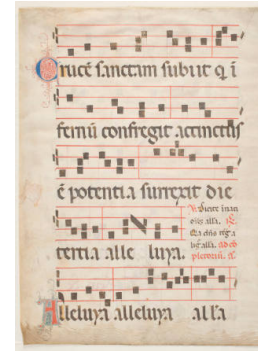 Crucē sanctam subiit q i
fernū confregit accinctus
ē potentia surrexit die
tertia alle luya.
alleluya alleluya alla